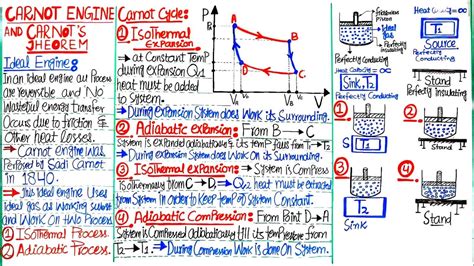 CARNOT ENGINE
AND CARNOT'S
THEOREM
Ideal Engine:
In an ideal engine all Process
are reversible and No
Wasteful energy transfer
Occurs due to friction &
Other heat losses.
→ Carnot engine was
Perposed by Sadi Carnot
in 1840.
→ this Ideal engine Uses
Ideal gas as working subst
and Work on two Process.
① Isothermal Process.
② Adiabatic Process.
Carnot Cycle:
① Isothermal
expansion
→ at Constant Temp
during expansion Q1
heat must be added
to System.
→ During expansion System does Work its Surrounding.
② Adiabatic expansion: From B → C
System is expanded adiabatically & its temp falls from T1→T2
→ During expansion System does Work on its Surrounding.
③ Isothermal expansion: → System is Compress
isothermally from C→D, Q2 heat must be extracted
from System in order to keep temp of System Constant.
④ Adiabatic Compression: From Point D→A
System is Compressed adiabatically till its temperature from
T2→T1 → During Compression Work is done On System.
P
A
B
D
C
V
Ideal
gas
Perfectly Insulating
Perfectly Conducting
Heat Capacity=∞
T1
Source
Perfectly Conducting
Heat Capacity=∞
Sink, T2
Perfectly Conducting
Stand
Perfectly Insulating
1.
S
T1
2.
Stand
3.
T2
Sink
4.
Stand